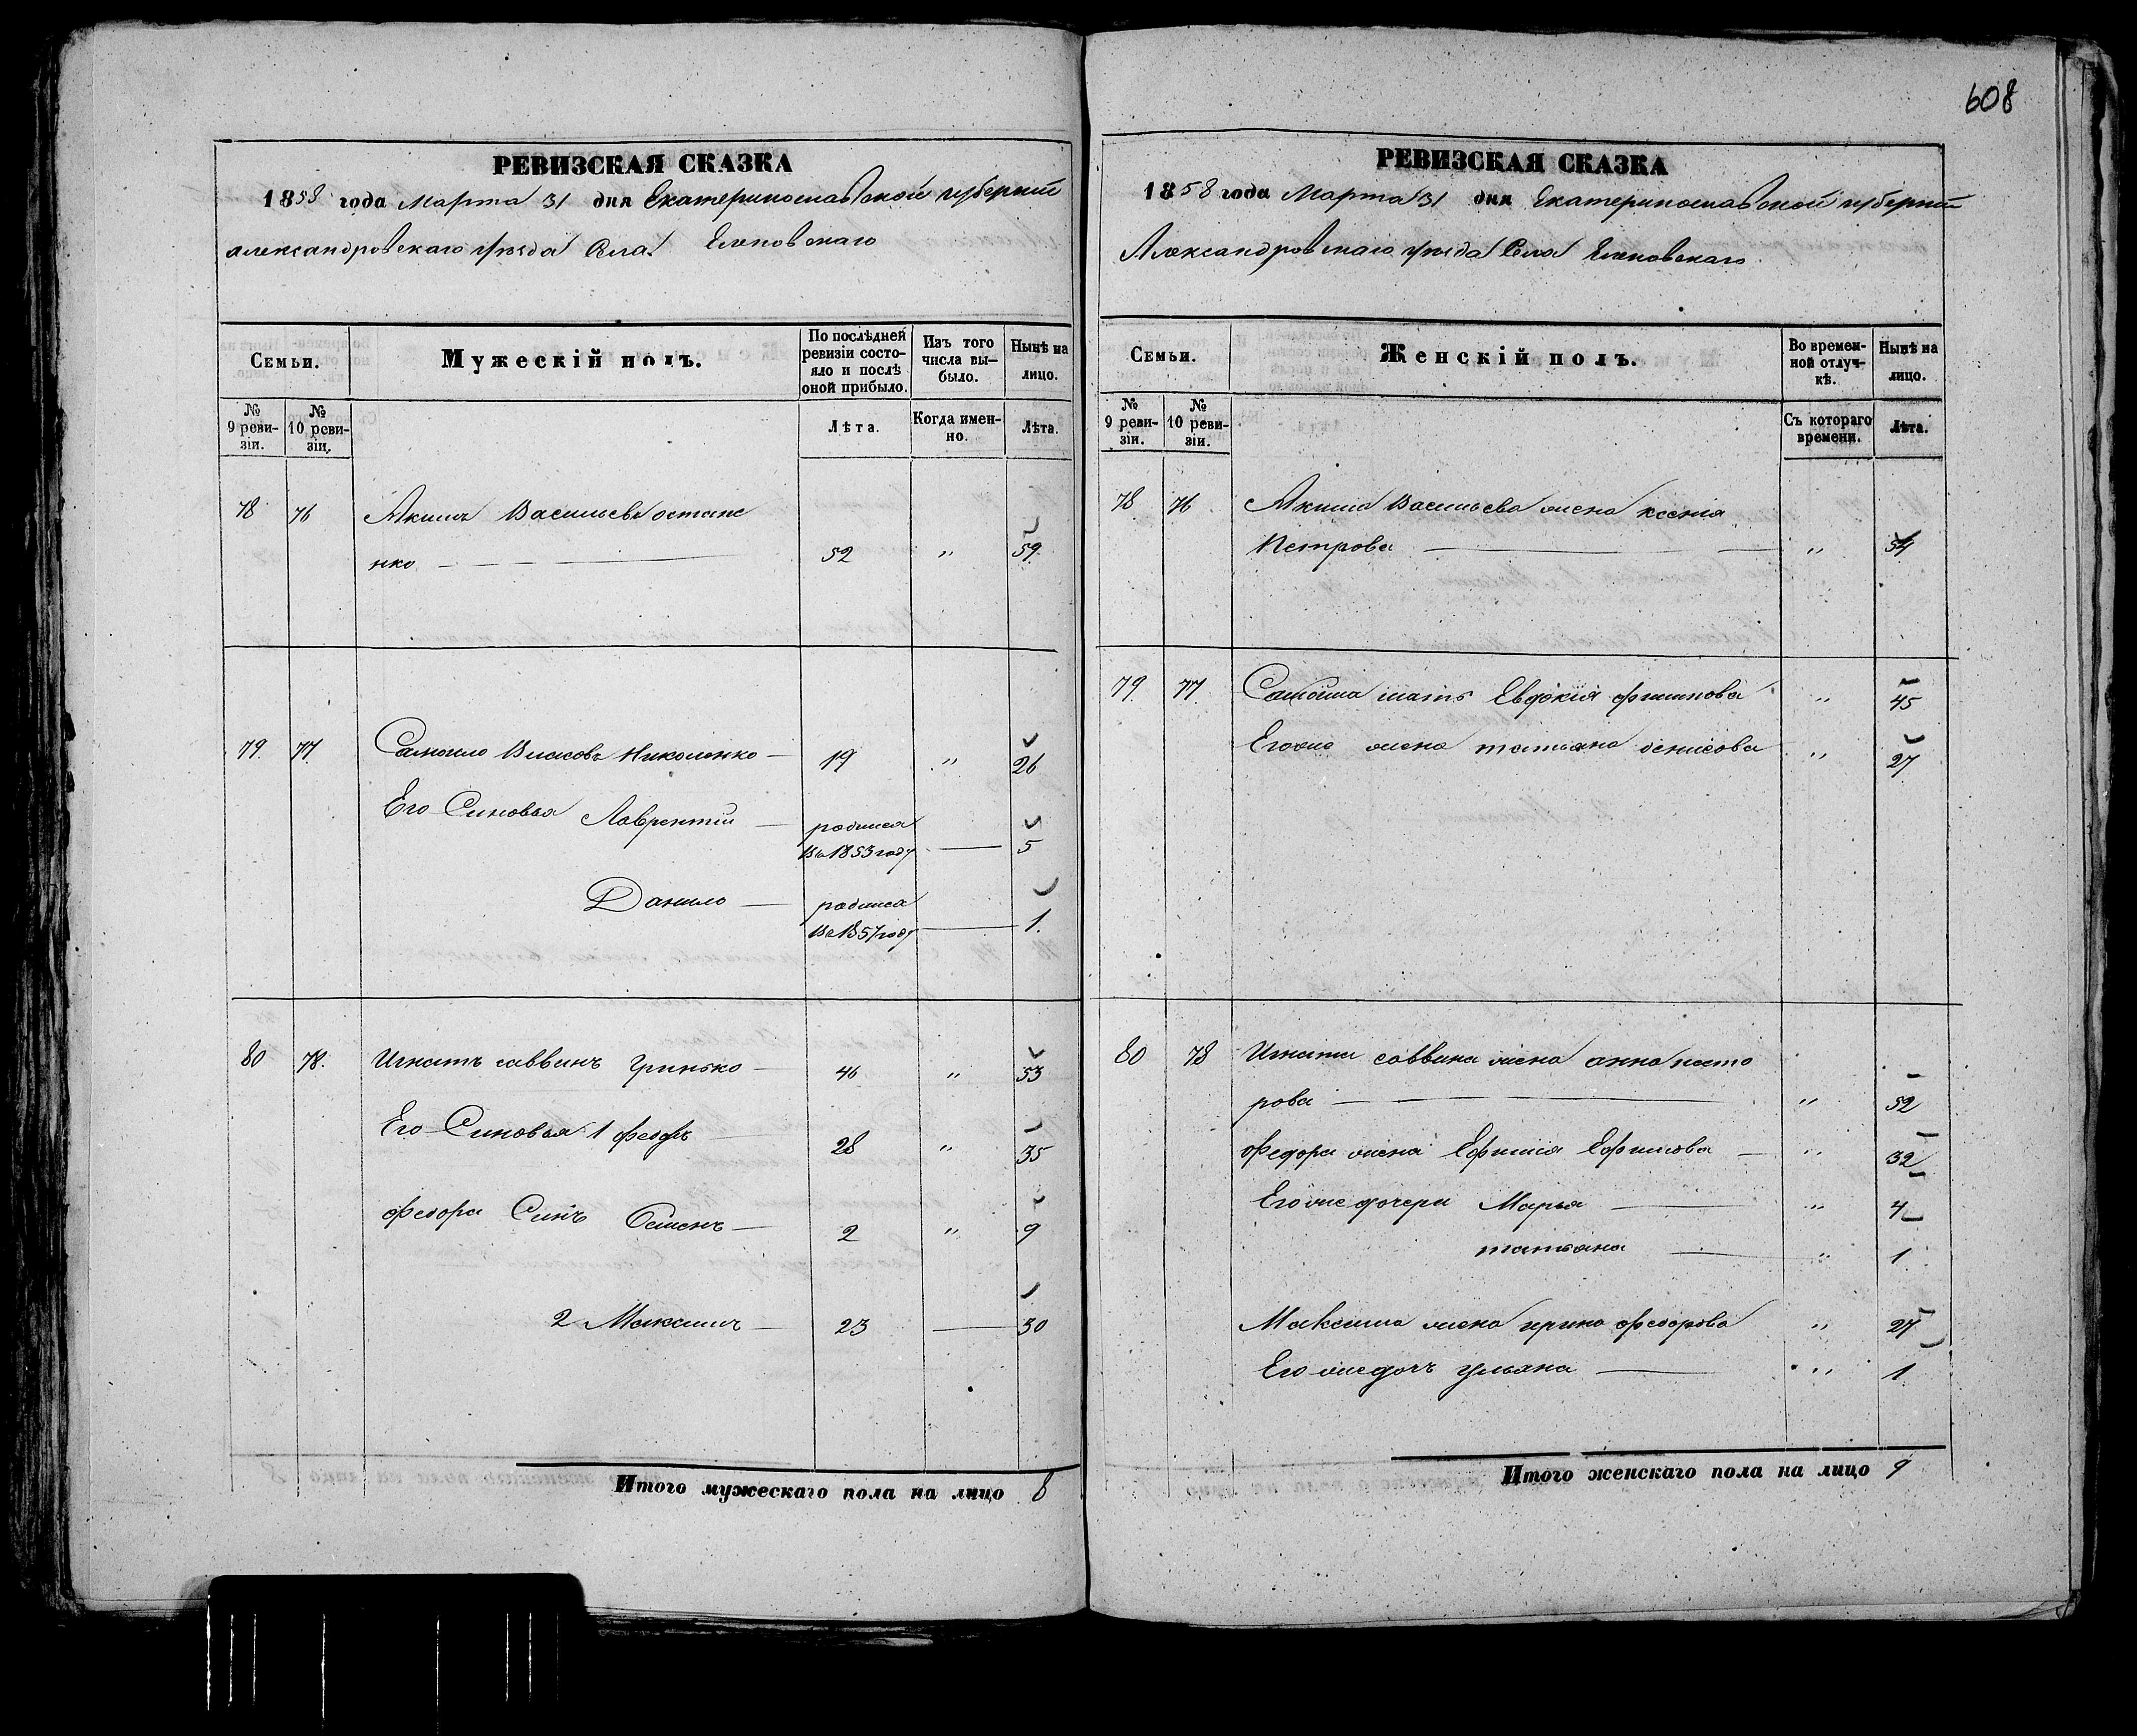 608
РЕВИЗСКАЯ СКАЗКА
1858 года Марта 31 дня Екатеринославской губернии
Александровскаго уезда Села Еленовскаго
Семьи.
Мужескій полъ.
По послѣдней ревизіи состояло и послѣ оной прибыло.
Изъ того числа выбыло.
Нынѣ на лицо.
№ 9 ревизіи.
№ 10 ревизіи.
Лѣта.
Когда именно.
Лѣта.
78 76 Акимъ Васильевъ остапе
нко 52 " 59.
79. 77. Самоило Власовъ Николенко 19 " 26
Его Синовья Лаврентий родился
въ 1853 году 5
Данило родился
въ 1857 году 1.
80 78. Игнатъ саввинъ гринько 46 " 53
Его Синовья 1 федоръ 28 " 35
федора Синъ Семенъ 2 " 9
2 Максимъ 23 30
Итого мужескаго пола на лицо 8
РЕВИЗСКАЯ СКАЗКА
1858 года Марта 31 дня Екатеринославской губернии
Александровскаго уезда Села Еленовскаго
Семьи.
Женскій полъ.
Во временной отлучкѣ.
Нынѣ на лицо.
№ 9 ревизіи.
№ 10 ревизіи.
Съ котораго времени.
Лѣта.
78 76 Акима Васильева жена ксения
Петрова " 54
79. 77. Самоила мать Евдокия филипова " 45
Егоже жена татьяна денисова " 27
80 78 Игната саввина жена анна несто
рова " 52
Федора жена Ефимия Ефимова " 32
Егоже дочери Марья " 4
татьяна " 1
Максима жена ирина федорова " 27
Егоже дочъ ульяна " 1
Итого женскаго пола на лицо 9